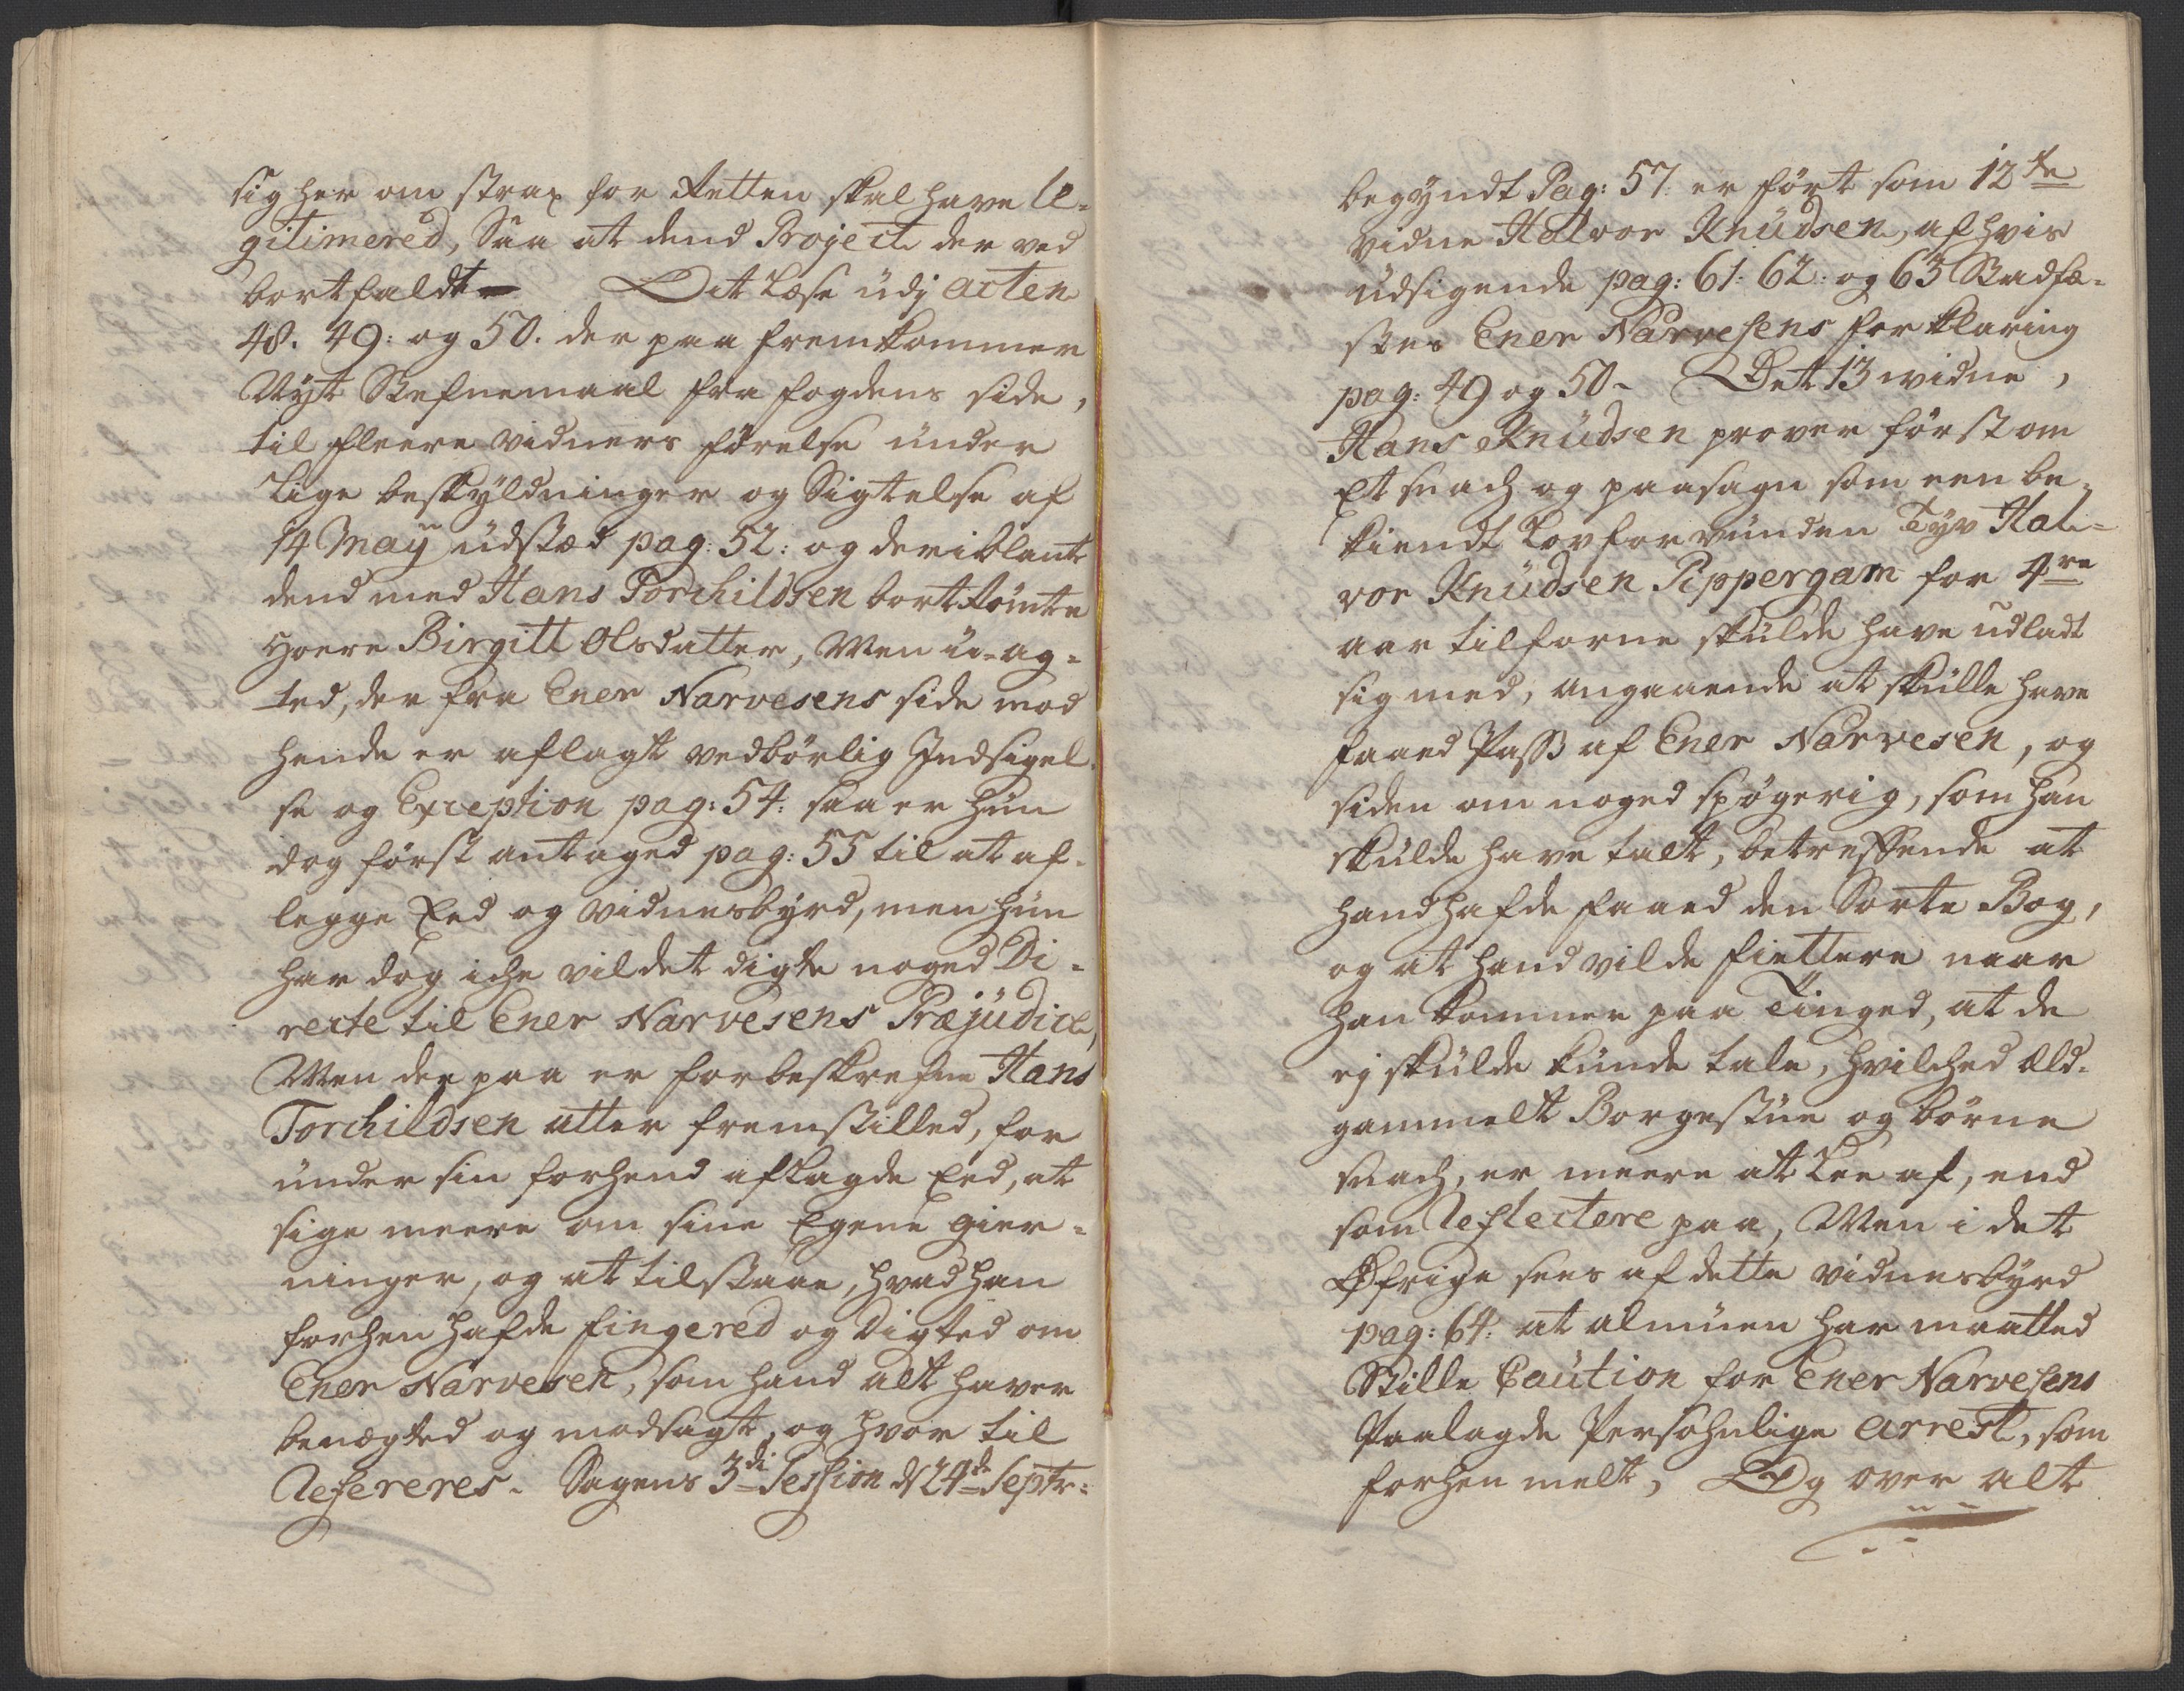 sig her om strax for Retten skal have le-
gitimered, Saa at dend Project der ved
bortfaldt – Dit Læse udj acten
48. 49: og 50. der paa fremkommer
Nyt Stefnemaal fra fogdens side,
til fleere vidners førelse under
Lige beskyldninger og Sigtelse af
14 Maÿ udstæd pag: 52: og deriblant
dend med Hans Torchildsen bortrømte
Hoere Birgitt Olsdatter, Men u-ag-
ted, der fra Ener Narvesens side mod
hende er aflagt vedbørlig Indsigel-
se og Exception pag: 54: saa er hun
dog først antaged pag: 55 til at af-
legge Eed og vidnesbyrd, men hun
har dog iche vildet digte noged Di-
recte til Ener Narvesens Præjudice,
Men der paa er forbeskrefne Hans
Torchildsen atter fremstilled, for
under sin forhend aflagde Eed, at
sige meere om sine Egene gier-
ninger, og at tilstaae, hvad han
forhen hafde fingered og digted om
Ener Narvesen, som hand alt haver
benægted og modsagt, og hvor til
Refereres. Sagens 3di Session d 24de Septr:
begyndt Pag: 57: er ført som 12te
vidne Halvor Knudsen, af hvis
udsigende pag: 61: 62: og 63 Stadfæ-
stes Ener Narvesens forklaring
pag: 49 og 50 – Det 13 widne,
Hans Knudsen prover først om
Et snach og paasagn som een be-
kiendt Lovforvunden Tyv Hal-
vor Knudsen Pippergam for 4re
aar tilforne skulde have udladt
sig med, angaaende at skulle have
faaed Pass af Ener Narvesen, og
siden om noged spøgerig, som han
skulde have talt, betreffende at
hand hafde faaed den Sorte Bog,
og at hand vilde fiettere naar
han kommer paa Tinged, at de
ej skulde kunde tale, hvilched Æld-
gammelt Borgestue og børne
snach, er meere at Lee af, end
som reflectere paa, Men i det
Øfrige sees af dette vidnesbyrd
pag: 64: at almuen har maatted
Stille Caution for Ener Narvesens
Paalagde Personlige arrest, som
forhen melt, Og over alt